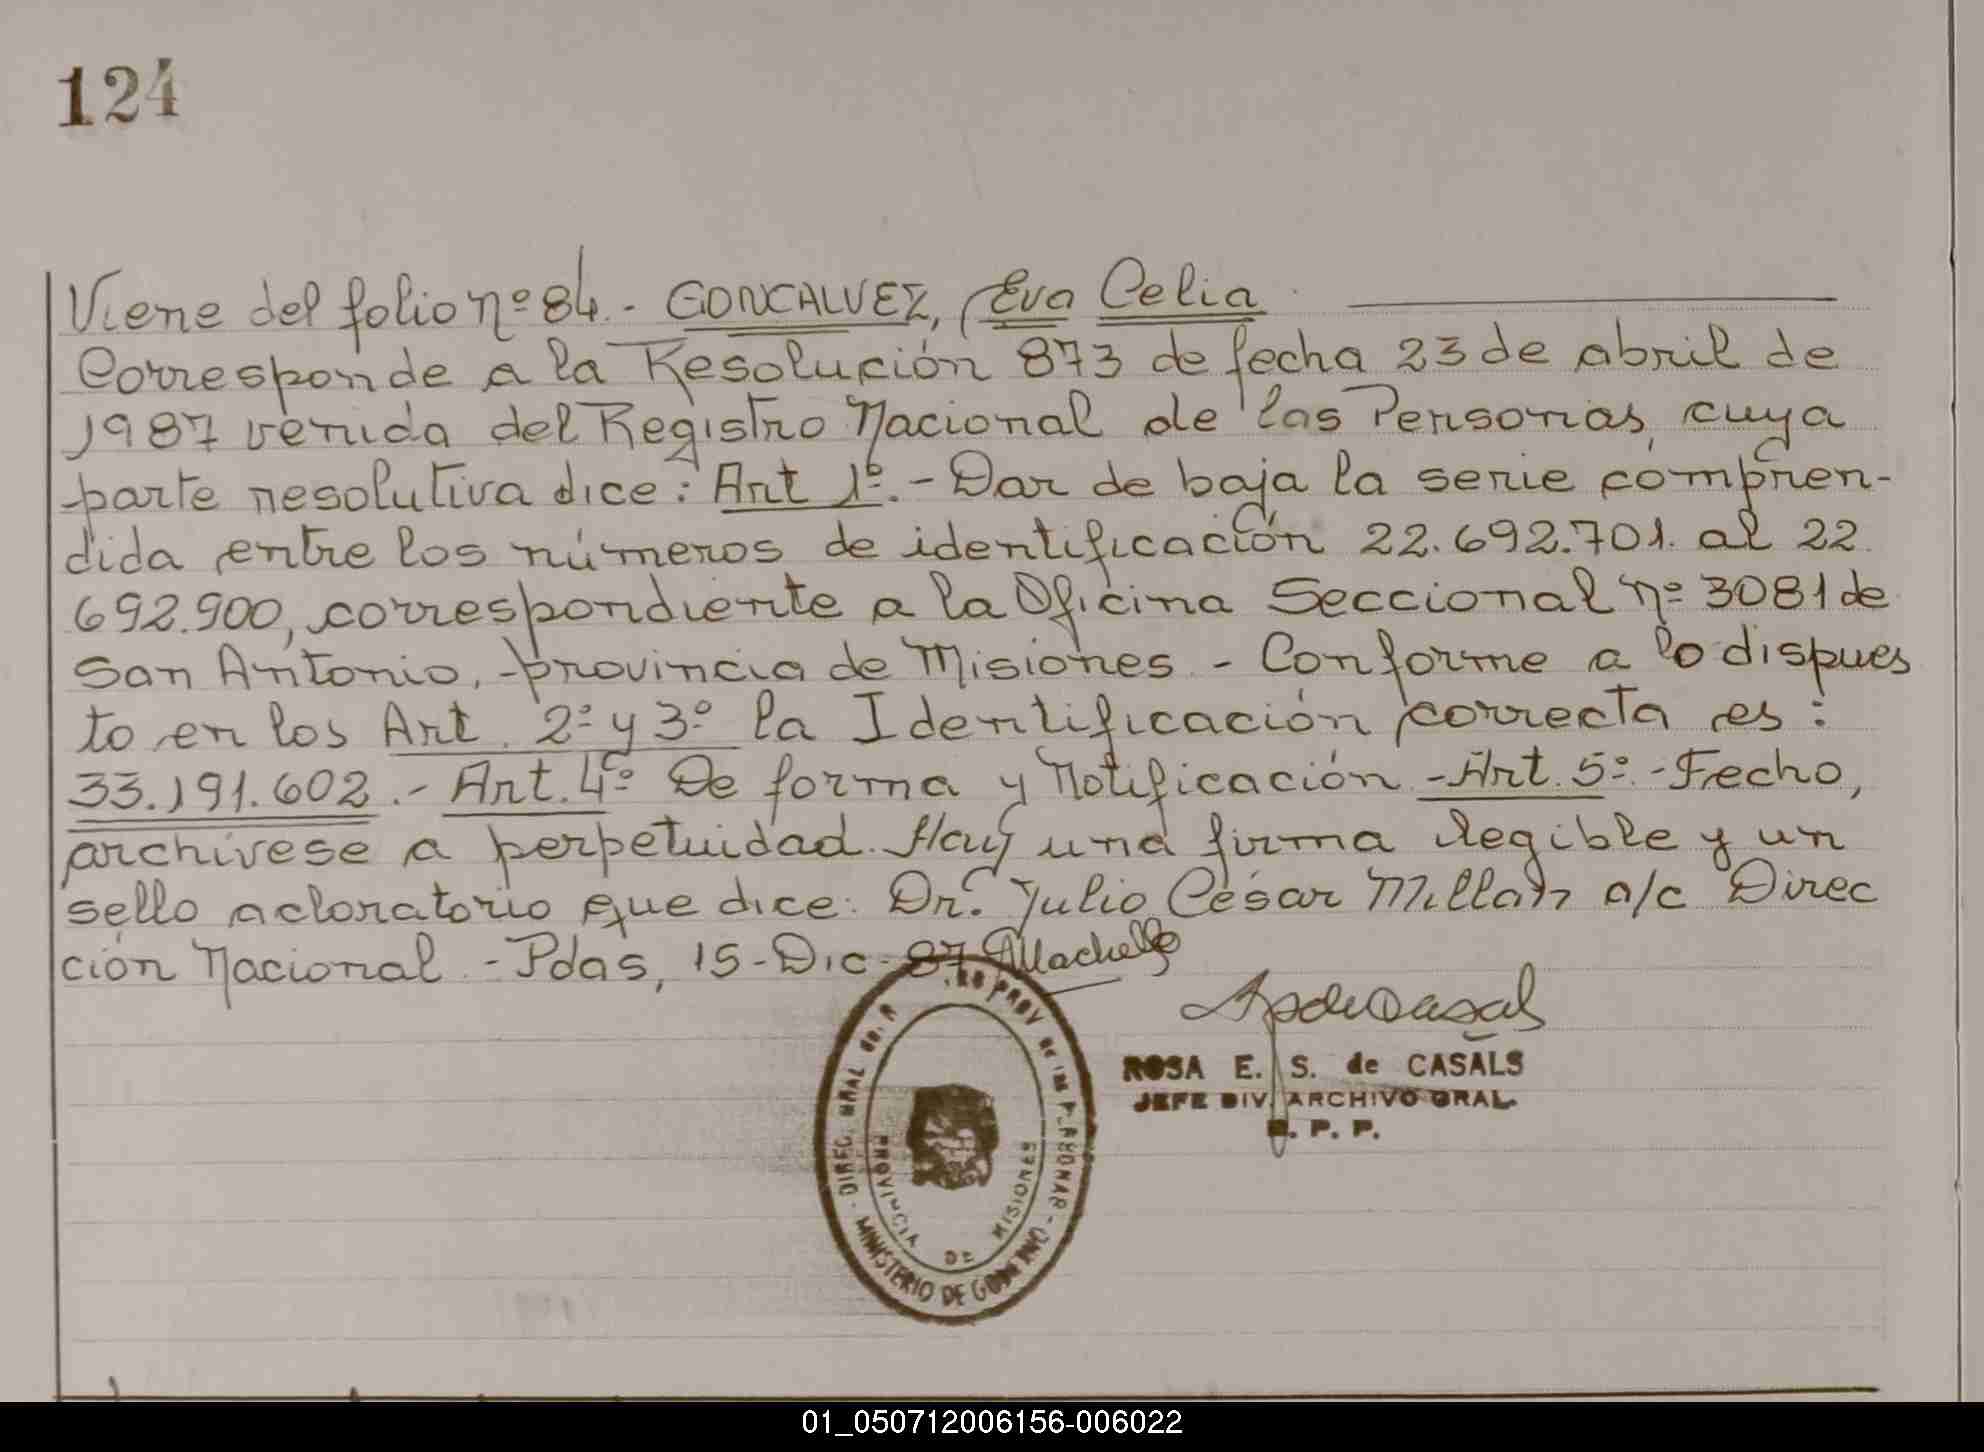 124
Viene del folio nº 84.- GONCALVEZ, Eva Celia
Corresponde a la Resolución 873 de fecha 23 de abril de
1987 venida del Registro Nacional de las Personas, cuya
parte resolutiva dice: Art 1º.- Dar de baja la serie compren-
dida entre los números de identificación 22.692.701. al 22.
692.900, correspondiente a la Oficina Seccional nº 3081 de
San Antonio, provincia de Misiones - Conforme a lo dispues
to en los Art. 2º y 3º la Identificación correcta es:
33.191.602.- Art. 4º De forma y Notificación - Art. 5º.- Fecho,
archívese a perpetuidad. Hay una firma ilegible y un
sello acloratorio que dice: Dr. Julio César Millan a/c Direc
ción Nacional - Pdas, 15-Dic-87
ROSA E. S. de CASALS
JEFE DIV. ARCHIVO GRAL.
R. P. P.
PROVINCIA DE MISIONES
MINISTERIO DE GOBIERNO
01_050712006156-006022